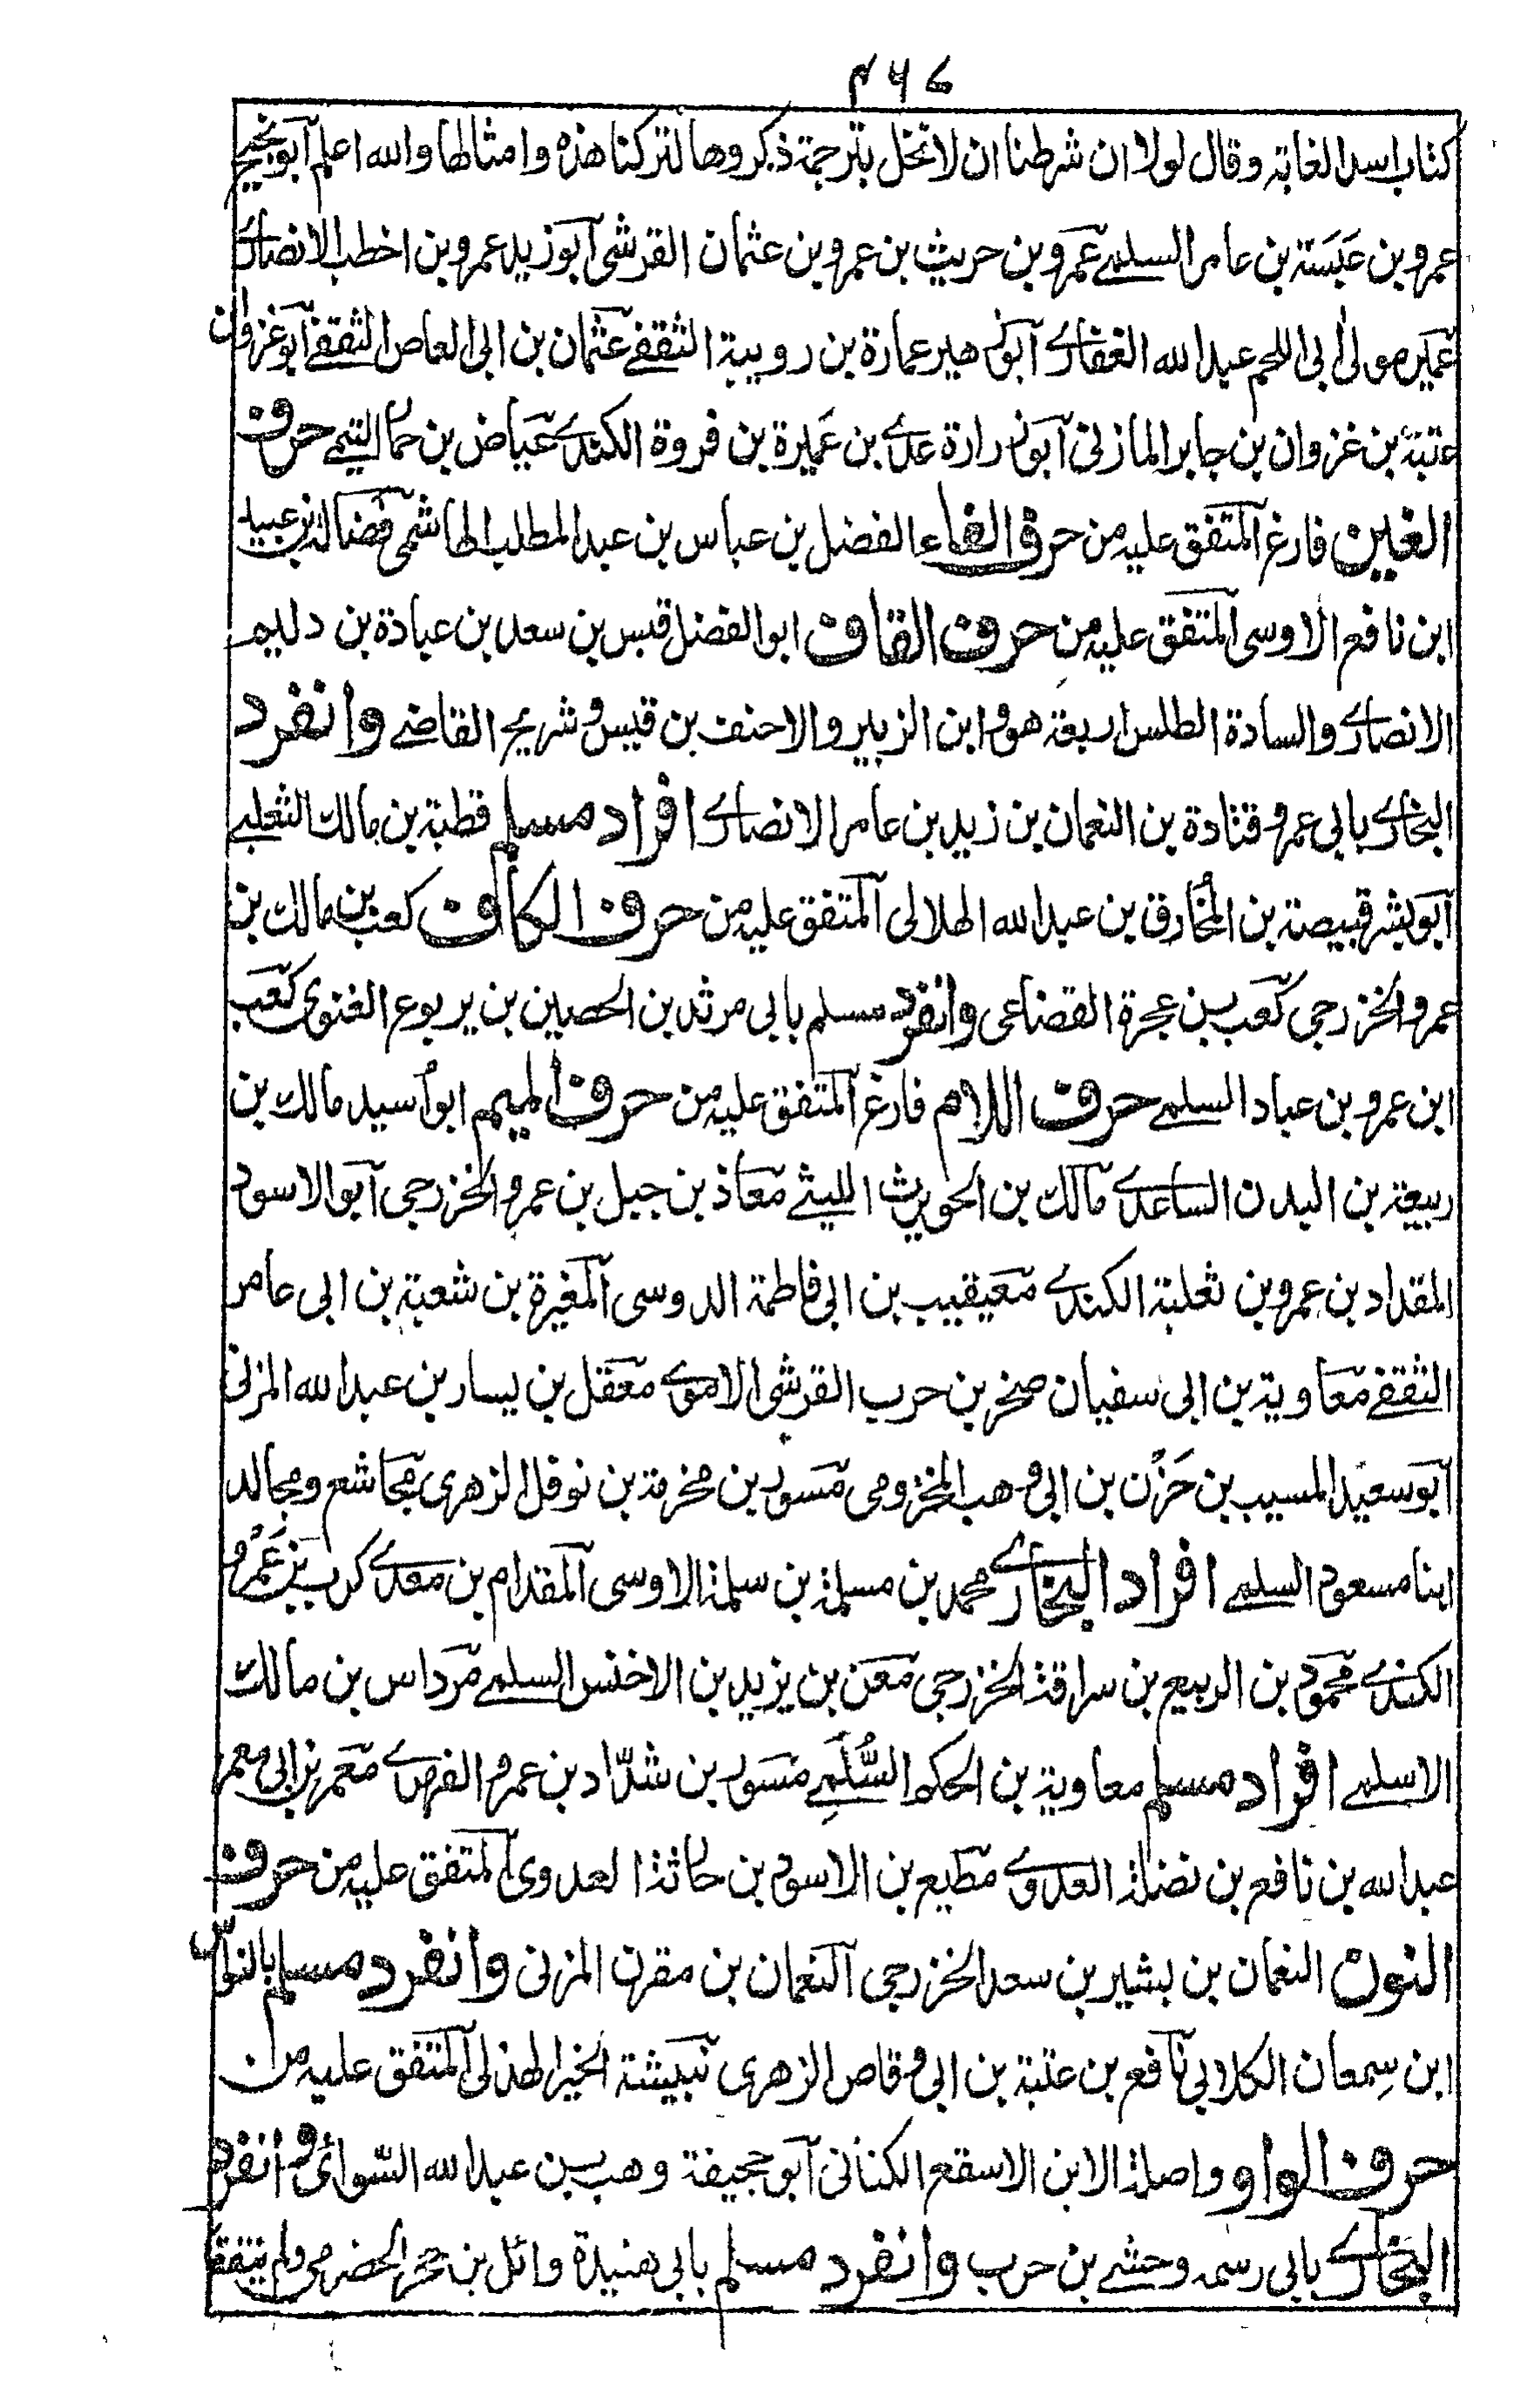 ۴۶۷
كتاب اسد الغابة وقال لولا ان شرطنا ان لا نخل بترجمة ذكروها لتركنا هذه وامثالها والله اعلم ابو نجيح
عمرو بن عَبَسَة بن عامر السلمے عمرو بن حريث بن عمرو بن عثمان القرشى ابو زيد عمرو بن اخطب الانصارے
عمير مولى ابى اللحم عبد الله الغفارے ابو زهير عمارة بن رويبة الثقفے عثمان بن ابى العاص الثقفے ابو غزوان
عتبة بن غزوان بن جابر المازنى ابو زرارة عدے بن عَميرة بن فروة الكندے عياض بن حمار التيمے حرف
الغين فارغ المتفق عليه من حرف الفاء الفضل بن عباس بن عبد المطلب الهاشمى فضالة بن عبيد
ابن نافع الاوسى المتفق عليه من حرف القاف ابو الفضل قيس بن سعد بن عبادة بن دليم
الانصارے والسادة الطلس اربعة هو وابن الزبير والاحنف بن قيس وشريح القاضے وانفرد
البخارے بابى عمرو قتادة بن النعمان بن زيد بن عامر الانصارے افراد مسلم قطبة بن مالك الثعلبے
ابو بشر قبيصة بن المُخارق بن عبد الله الهلالى المتفق عليه من حرف الكاف كعب بن مالك بن
عمرو الخزرجى كعب بن عجرة القضاعى وانفرد مسلم بابى مرثد بن الحصين بن يربوع الغنوى كعب
ابن عمرو بن عباد السلمے حرف اللام فارغ المتفق عليه من حرف الميم ابو اُسيد مالك بن
ربيعة بن البدن الساعدے مالك بن الحويرث الليثے معاذ بن جبل بن عمرو الخزرجى ابو الاسود
المقداد بن عمرو بن ثعلبة الكندے معيقيب بن ابى فاطمة الدوسى المغيرة بن شعبة بن ابى عامر
الثقفے معاوية بن ابى سفيان صخر بن حرب القرشى الاموے معقل بن يسار بن عبد الله المزنى
ابو سعيد المسيب بن حَزْن بن ابى وهب المخزومى مسور بن مخرمة بن نوفل الزهرى مجاشع ومجالد
ابنا مسعود السلمے افراد البخارے محمد بن مسلمة بن سلمة الاوسى المقدام بن معدے كرب بن عَمْرو
الكندے محمود بن الربيع بن سراقة الخزرجى معن بن يزيد بن الاخنس السلمے مرداس بن مالك
الاسلمے افراد مسلم معاوية بن الحكم السُّلَمِے مسور بن شدّاد بن عمرو الفهرے معمر بن ابى معمر
عبد الله بن نافع بن نضلة العدوے مطيع بن الاسود بن حارثة العدوى المتفق عليه من حرف
النون النعمان بن بشير بن سعد الخزرجى النعمان بن مقرن المزنى وانفرد مسلم بالنوّاس
ابن سِمعان الكلابى نافع بن عتبة بن ابى وقاص الزهرى نبيشة الخير الهذلى المتفق عليه من
حرف الواو واصلة الابن الاسقع الكنانى ابو جحيفة وهب بن عبد الله السّوائى وانفرد
البخارے بابى رسمه وحشے بن حرب وانفرد مسلم بابى هنيدة وائل بن حجر الحضرمى ولم يتفقا